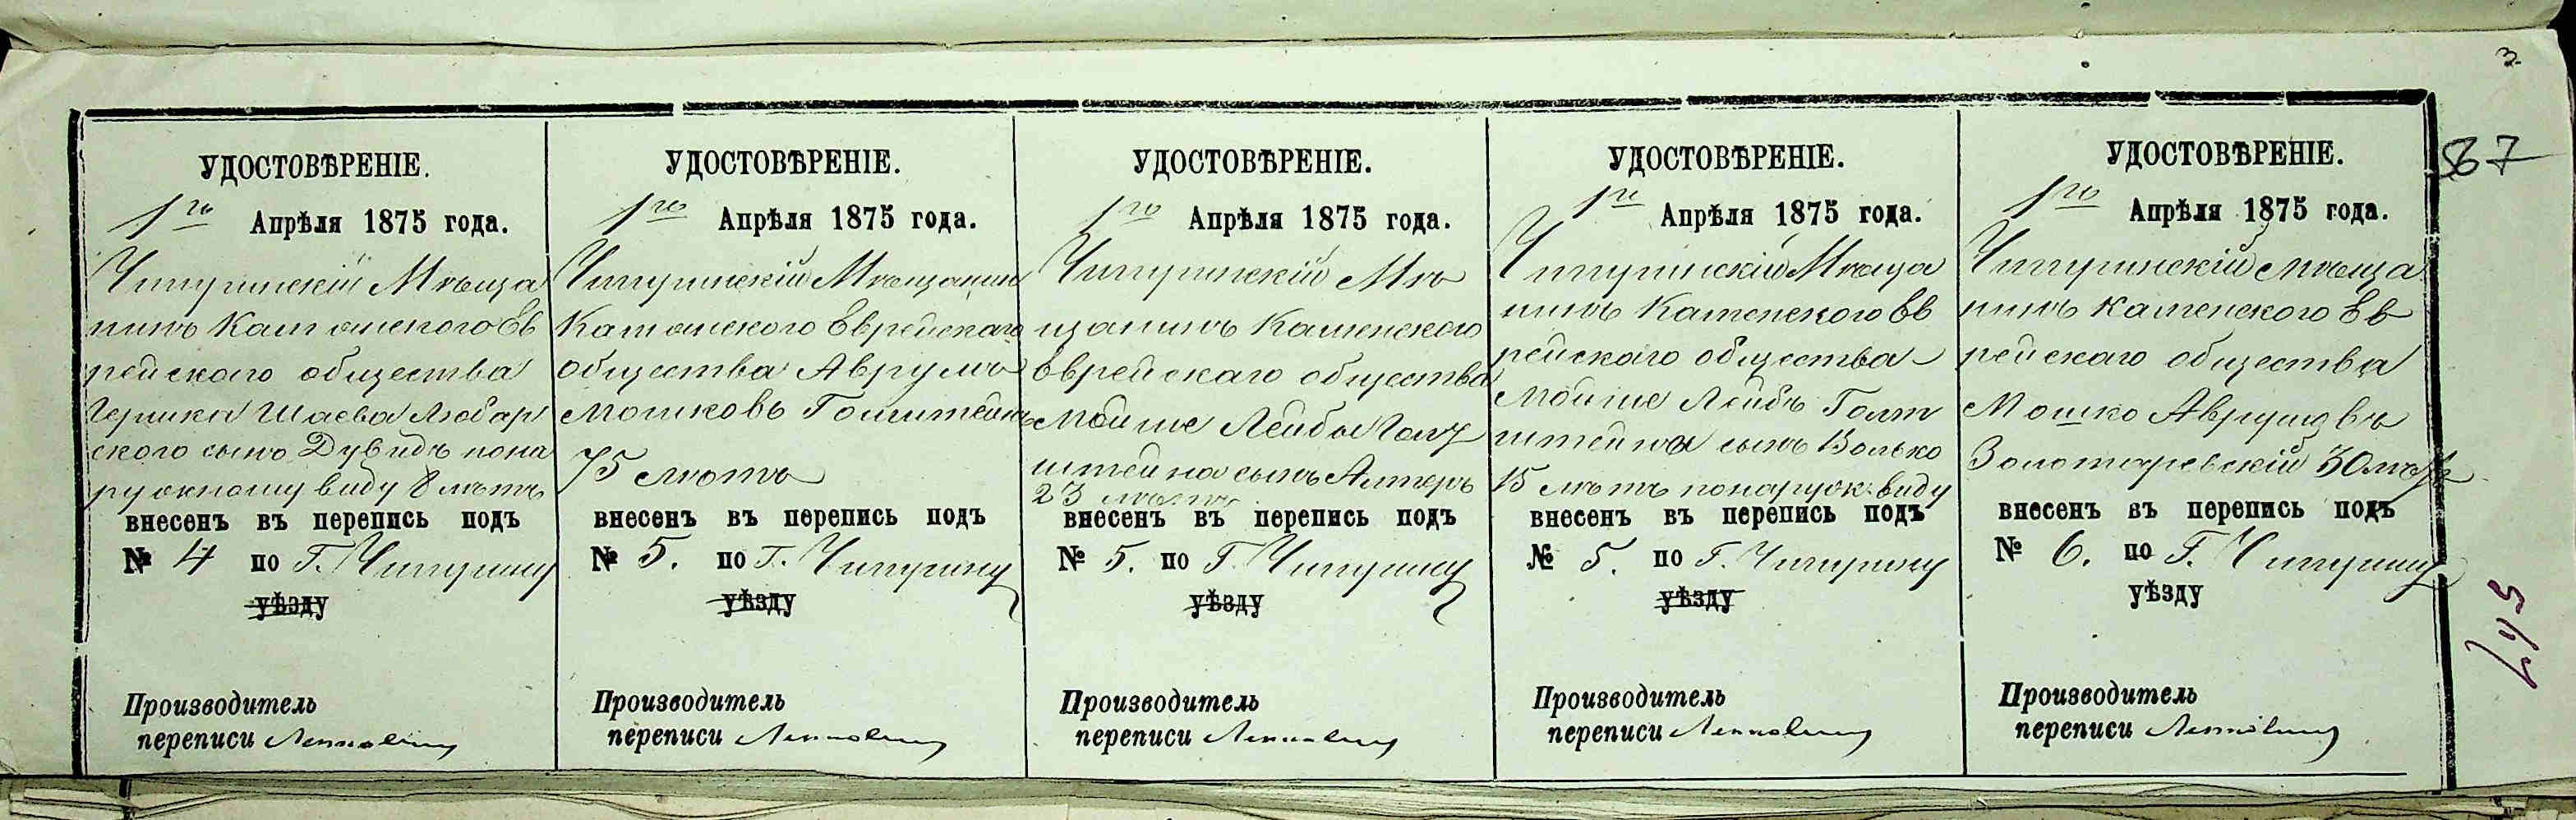 3
67
УДОСТОВѢРЕНІЕ.
1го Апрѣля 1875 года.
Чигиринскій Мѣща
нинъ Каменского Ев
рейскаго общества
Гершка Шаева Любар
ского сынъ Дувидъ пона
ружному виду 8 лѣтъ
внесенъ въ перепись подъ
№ 4 по Г. Чигирину
уѣзду
Производитель
переписи
УДОСТОВѢРЕНІЕ.
1го Апрѣля 1875 года.
Чигиринскій Мѣщанинъ
Каменского Еврейскаго
общества Аврумъ
Мошковъ Голштейнъ
75 лѣтъ
внесенъ въ перепись подъ
№ 5. по Г. Чигирину
уѣзду
Производитель
переписи
УДОСТОВѢРЕНІЕ.
1го Апрѣля 1875 года.
Чигиринскій Мѣ
щанинъ Каменского
Еврейскаго общества
Мойше Лейбы Голт
штейна сынъ Алтеръ
23 лѣтъ
внесенъ въ перепись подъ
№ 5. по Г. Чигирину
уѣзду
Производитель
переписи
УДОСТОВѢРЕНІЕ.
1го Апрѣля 1875 года.
Чигиринскій Мѣща
нинъ Каменского Ев
рейскаго общества
Мойше Лейбъ Голт
штейна сынъ Волько
15 лѣтъ понаруж: виду
внесенъ въ перепись подъ
№ 5. по Г. Чигирину
уѣзду
Производитель
переписи
УДОСТОВѢРЕНІЕ.
1го Апрѣля 1875 года.
Чигиринскій мѣща
нинъ Каменского Ев
рейскаго общества
Мошко Аврумовъ
Золотаревскій 30 лѣтъ
внесенъ въ перепись подъ
№ 6. по Г. Чигирину
уѣзду
Производитель
переписи